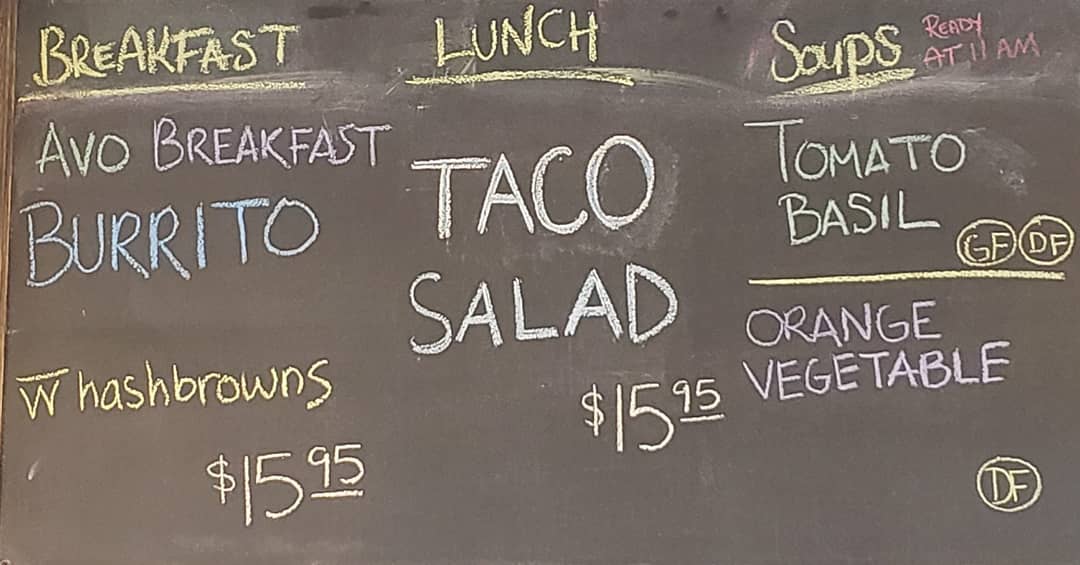 BREAKFAST
AVO BREAKFAST
BURRITO
W hashbrowns
$15 95
LUNCH
TACO
SALAD
$15 95
SOUPS READY
AT 11 AM
TOMATO
BASIL
GF DF
ORANGE
VEGETABLE
DF